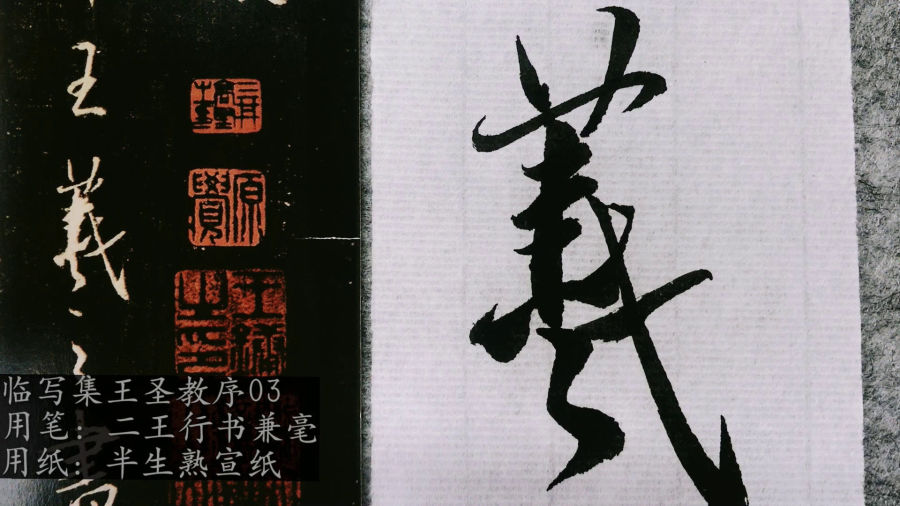 王羲之書
羲
临写集王圣教序03
用笔：二王行书兼毫
用纸：半生熟宣纸